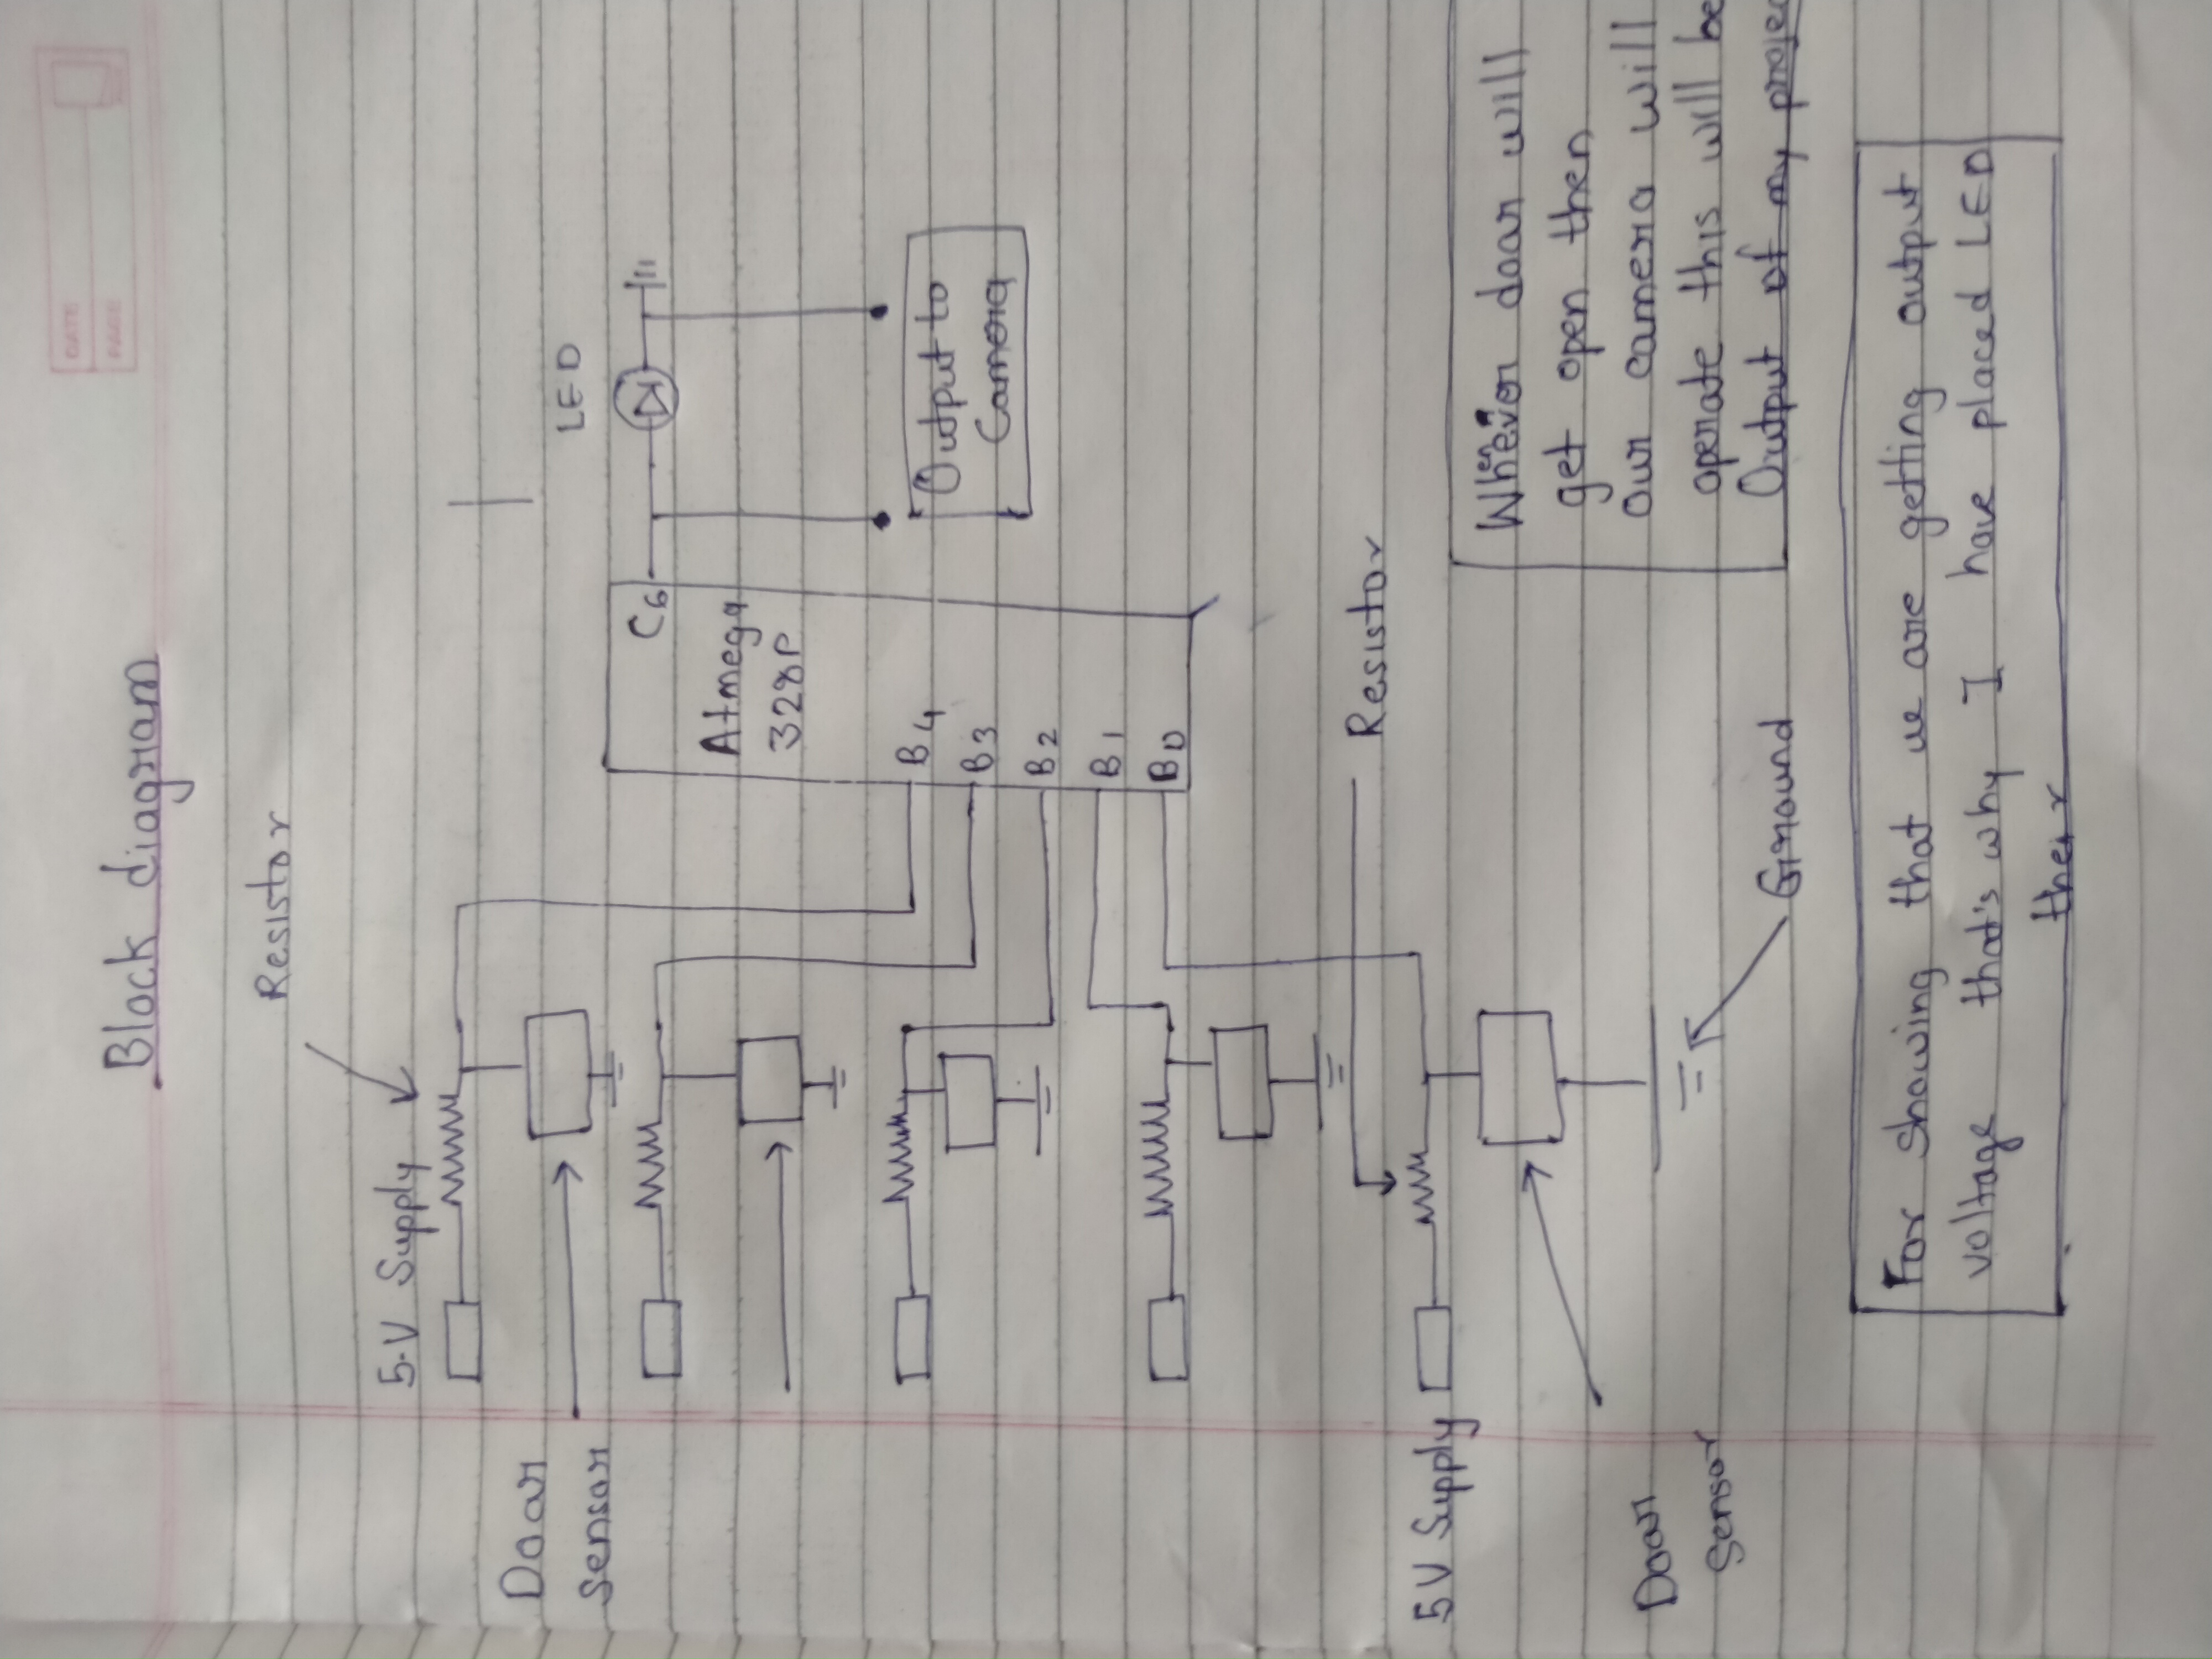 DATE
PAGE
Block diagram
Resistor
5-V Supply
Door
sensor
LED
C6
Atmega
328P
B4
B3
B2
B1
B0
Output to
Camera
Resistor
5V Supply
Door
Sensor
Ground
Whenever door will
get open then
our camera will
operate this will be
Output of my projec
For showing that we are getting output
voltage that's why I have placed LED
their